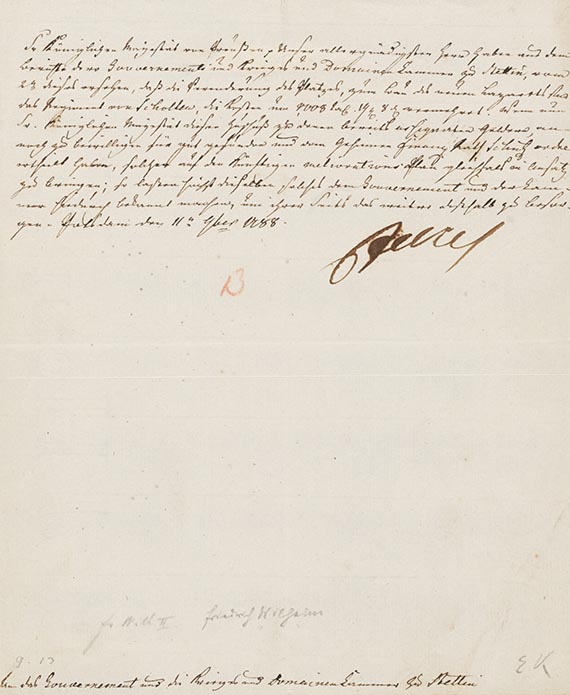 Sr. Königlichen Majestät von Preußen p. Unser allergnädigster Herr, haben aus dem
Berichte des Gouvernements und Krieges und Domainen Cammer zu Stettin, vom
23 dieses ersehen, daß die Veränderung des Platzes, zum Bau des neuen Lazareths für
das Regiment von die Kosten um vermehret. Wenn nun
Sr. Königlichen Majestät diesen Zuschuß zu denen bereits assignirten Geldern, an-
noch zu bewilligen für gut gefunden und dem Geheimen Finanz Rath Ordre
ertheilt haben, solchen auf den künftigen meliorations Plan gleichfals in Ansatz
zu bringen; so lassen Höchstdieselben solches dem Gouvernement und der Cam-
mer hiedurch bekannt machen, um ihrer Seits das weitere deshalb zu besor-
gen. Potsdam den 11ten 1788.
B
Fr. Wilh. II Friedrich Wilhelm
g. 13 EK
An das Gouvernement und die Krieges und Domainen Cammer zu Stettin